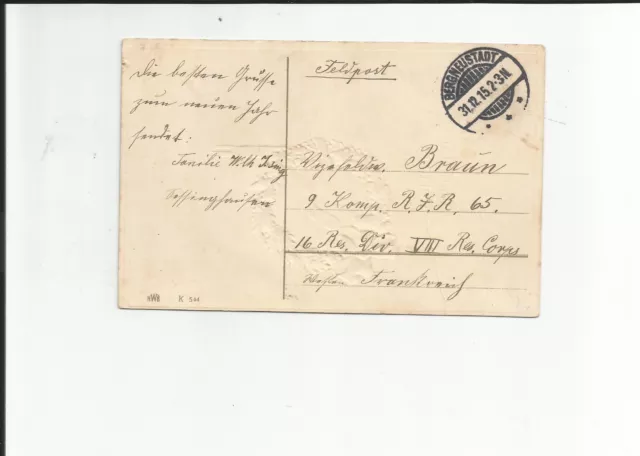 Die besten Grüsse
zum neuen Jahr
sendet:
Familie Wilh.
Feldpost
BERGNEUSTADT
31.12.15.2-3N.
Vizefeldw. Braun
9 Komp. R. J. R. 65.
16 Res. Div. VIII Res. Corps
Westen Frankreich
K 544